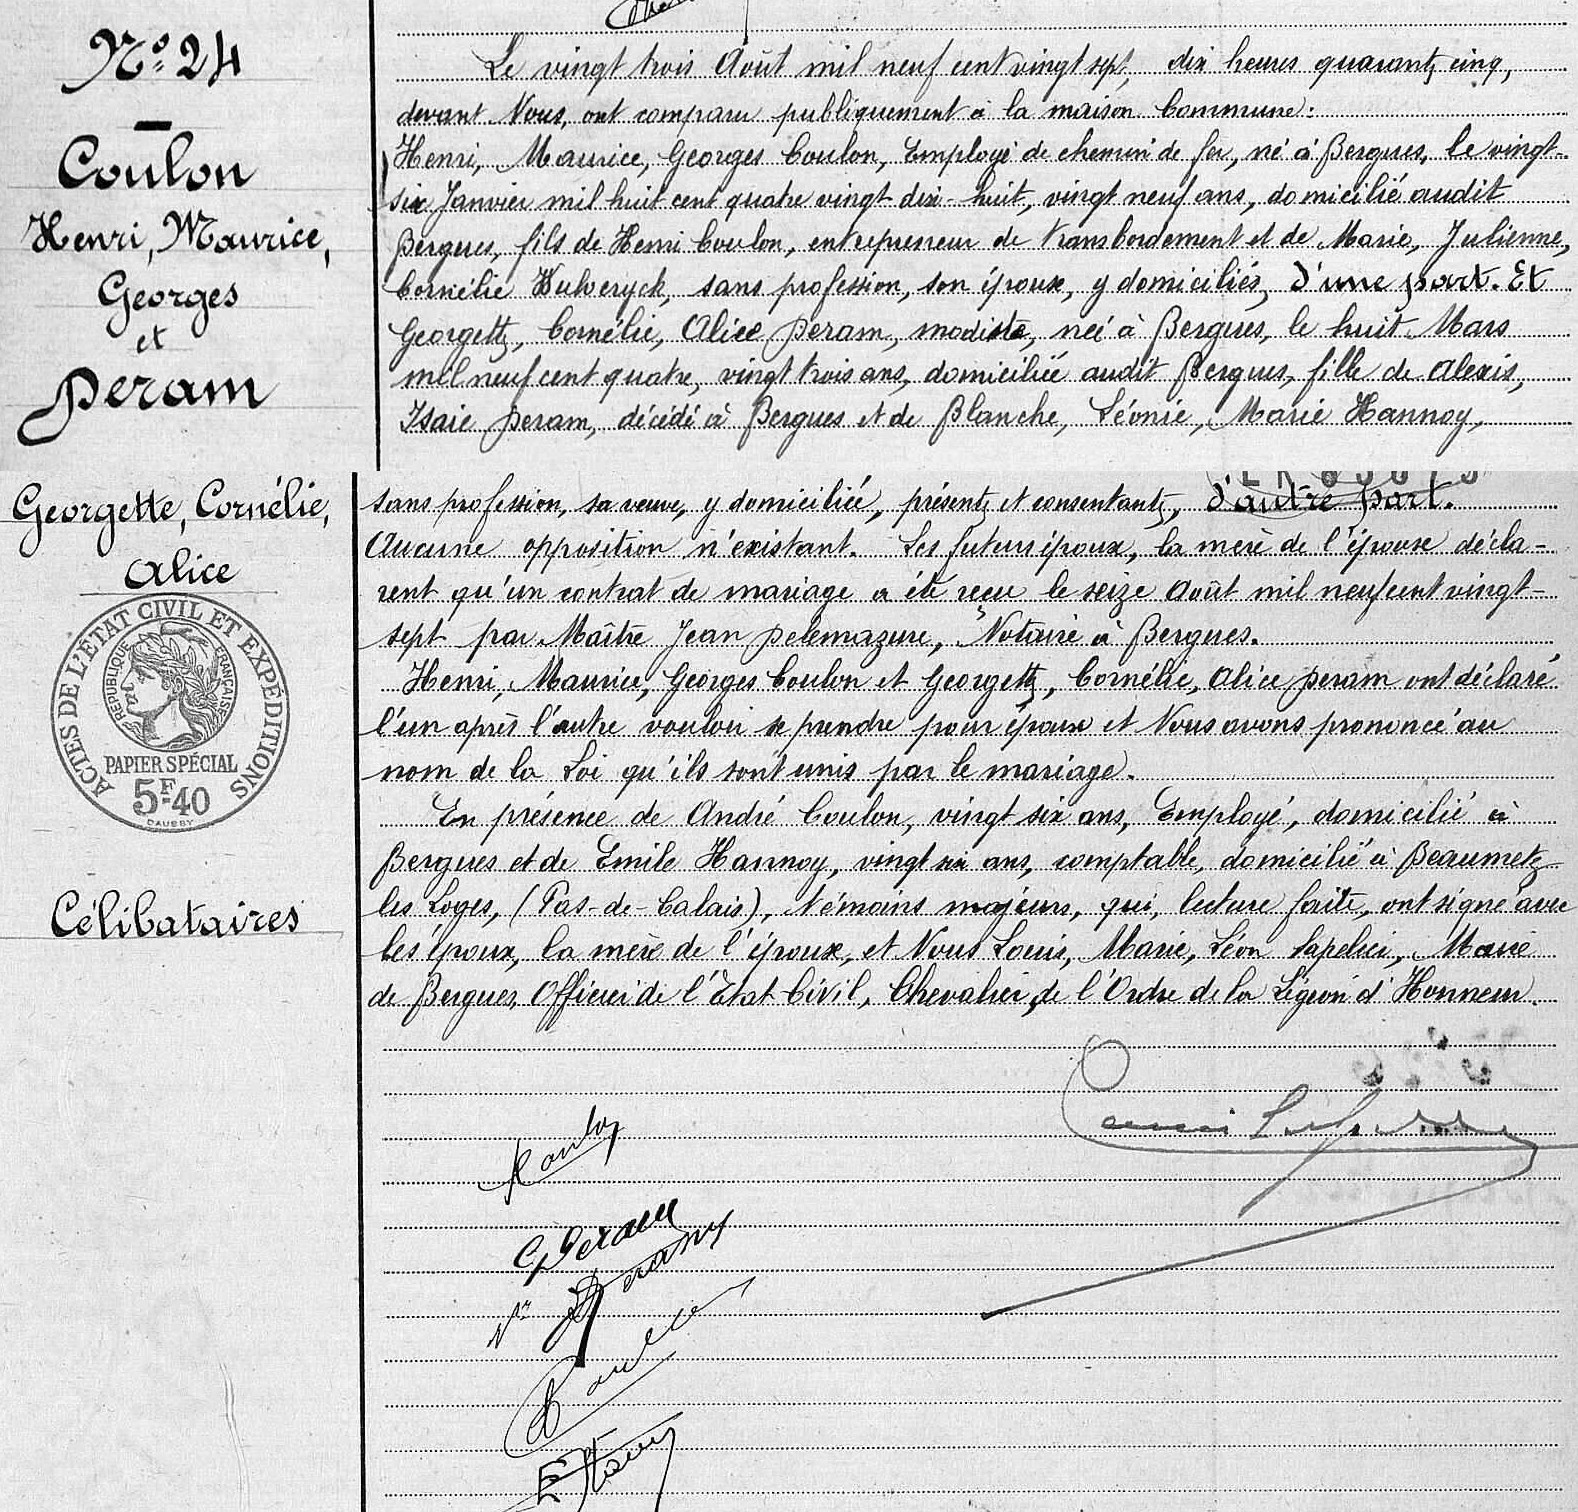 N° 24
Coulon
Henri, Maurice,
Georges
et
Deram
Georgette, Cornélie,
Alice
ACTES DE L'ÉTAT CIVIL ET EXPÉDITIONS
RÉPUBLIQUE FRANÇAISE
PAPIER SPÉCIAL
5F.40
DAUSSY
Célibataires
Le vingt trois Août mil neuf cent vingt sept, dix heures quarante cinq,
devant Nous, ont comparu publiquement à la maison Commune:
Henri, Maurice, Georges Coulon, Employé de chemin de fer, né à Bergues, le vingt-
six Janvier mil huit cent quatre vingt dix-huit, vingt neuf ans, domicilié audit
Bergues, fils de Henri Coulon, entrepreneur de transbordement et de Marie, Julienne,
Cornélie Wulveryck, sans profession, son épouse, y domiciliés, d'une part. Et
Georgette, Cornélie, Alice Deram, modiste, née à Bergues, le huit Mars
mil neuf cent quatre, vingt trois ans, domiciliée audit Bergues, fille de Alexis,
Isaïe Deram, décédé à Bergues et de Blanche, Léonie, Marie Hannoy,
sans profession, sa veuve, y domiciliée, présente et consentante, d'autre part.
Aucune opposition n'existant. Les futurs époux, la mère de l'épouse décla-
rent qu'un contrat de mariage a été reçu le seize Août mil neuf cent vingt-
sept par Maître Jean Delemazure, Notaire à Bergues.
Henri, Maurice, Georges Coulon et Georgette, Cornélie, Alice Deram ont déclaré
l'un après l'autre vouloir se prendre pour époux et Nous avons prononcé au
nom de la Loi qu'ils sont unis par le mariage.
En présence de André Coulon, vingt six ans, Employé, domicilié à
Bergues et de Emile Hannoy, vingt six ans, comptable, domicilié à Beaumetz-
les Loges, (Pas-de-Calais), témoins majeurs, qui, lecture faite, ont signé avec
les époux, la mère de l'épouse, et Nous Louis, Marie, Léon Sapelier, Maire
de Bergues, Officier de l'Etat-Civil, Chevalier de l'Ordre de la Légion d'Honneur.
Coulon
G Deram
Vve Deram
Coulon
E Hannoy